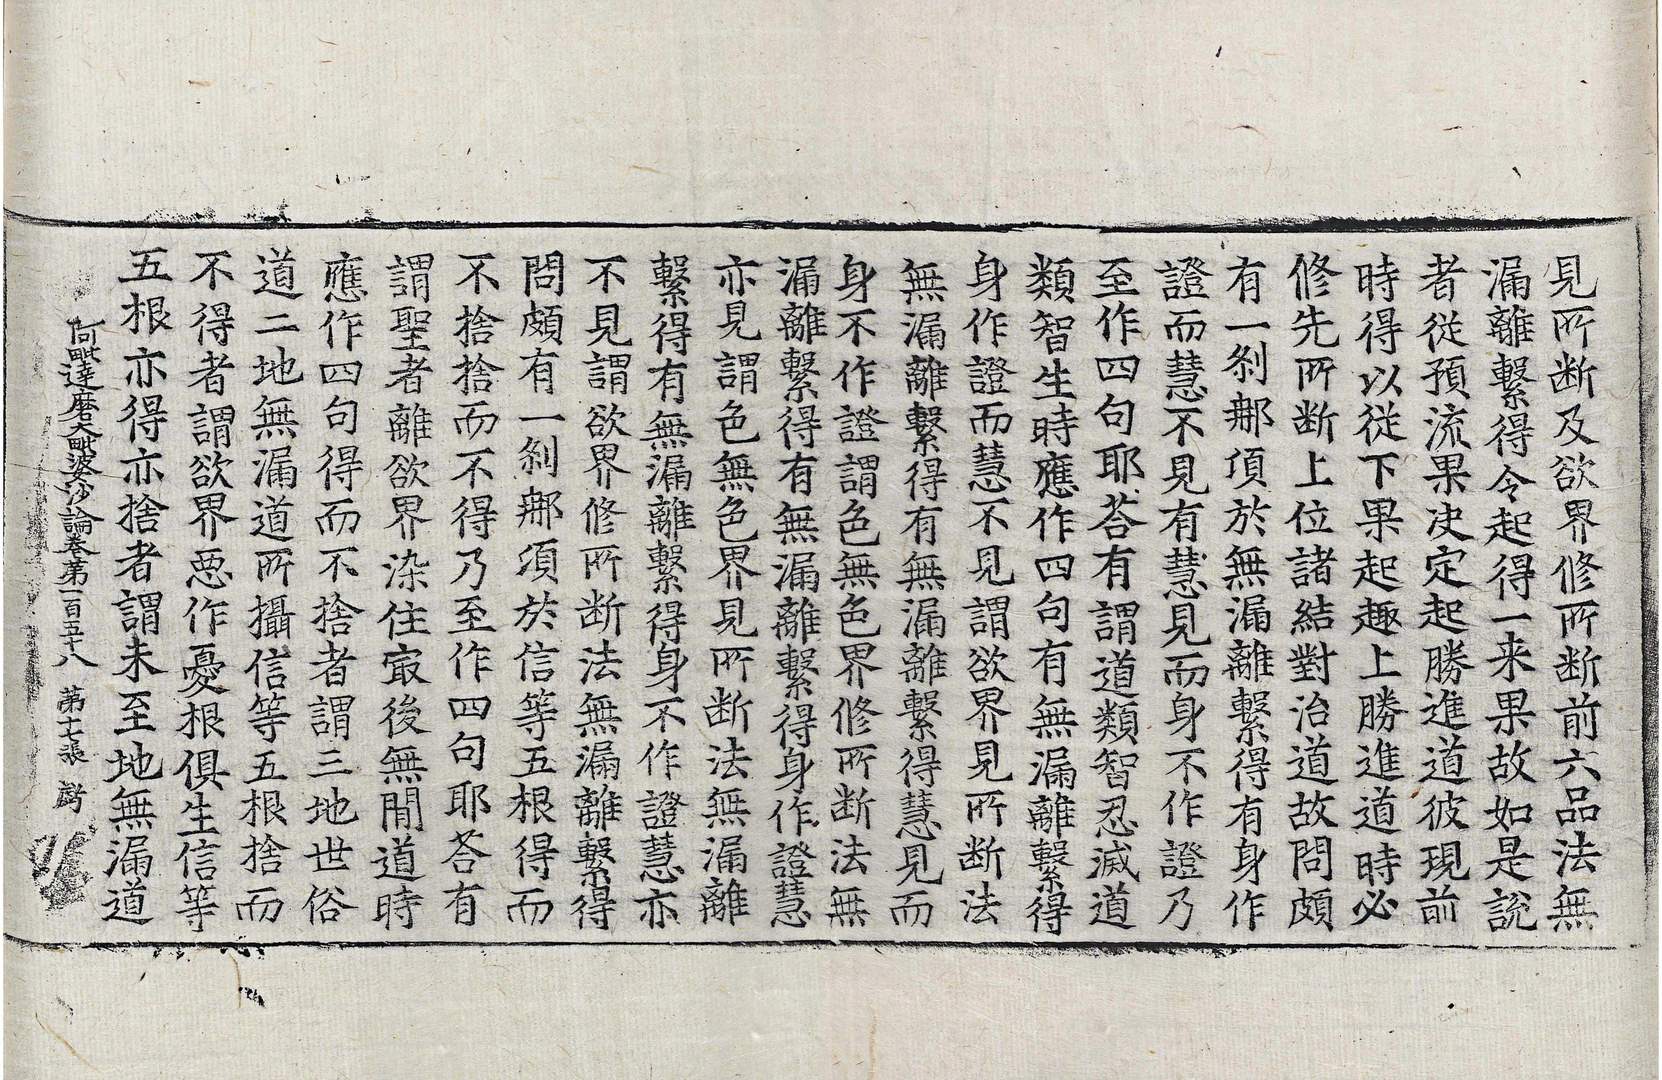 見所断及欲界修所断前六品法無
漏離繫得令起得一来果故如是說
者從預流果決定起勝進道彼現前
時得以從下果起趣上勝進道時必
修先所断上位諸結對治道故問頗
有一剎那頃於無漏離繫得有身作
證而慧不見有慧見而身不作證乃
至作四句耶荅有謂道類智忍滅道
類智生時應作四句有無漏離繫得
身作證而慧不見謂欲界見所断法
無漏離繫得有無漏離繫得慧見而
身不作證謂色無色界修所断法無
漏離繫得有無漏離繫得身作證慧
亦見謂色無色界見所断法無漏離
繫得有無漏離繫得身不作證慧亦
不見謂欲界修所断法無漏離繫得
問頗有一剎那頃於信等五根得而
不捨捨而不得乃至作四句耶荅有
謂聖者離欲界染住㝡後無閒道時
應作四句得而不捨者謂三地世俗
道二地無漏道所攝信等五根捨而
不得者謂欲界惡作憂根俱生信等
五根亦得亦捨者謂未至地無漏道
阿毗達磨大毗婆沙論卷第一百五十八 第十七張